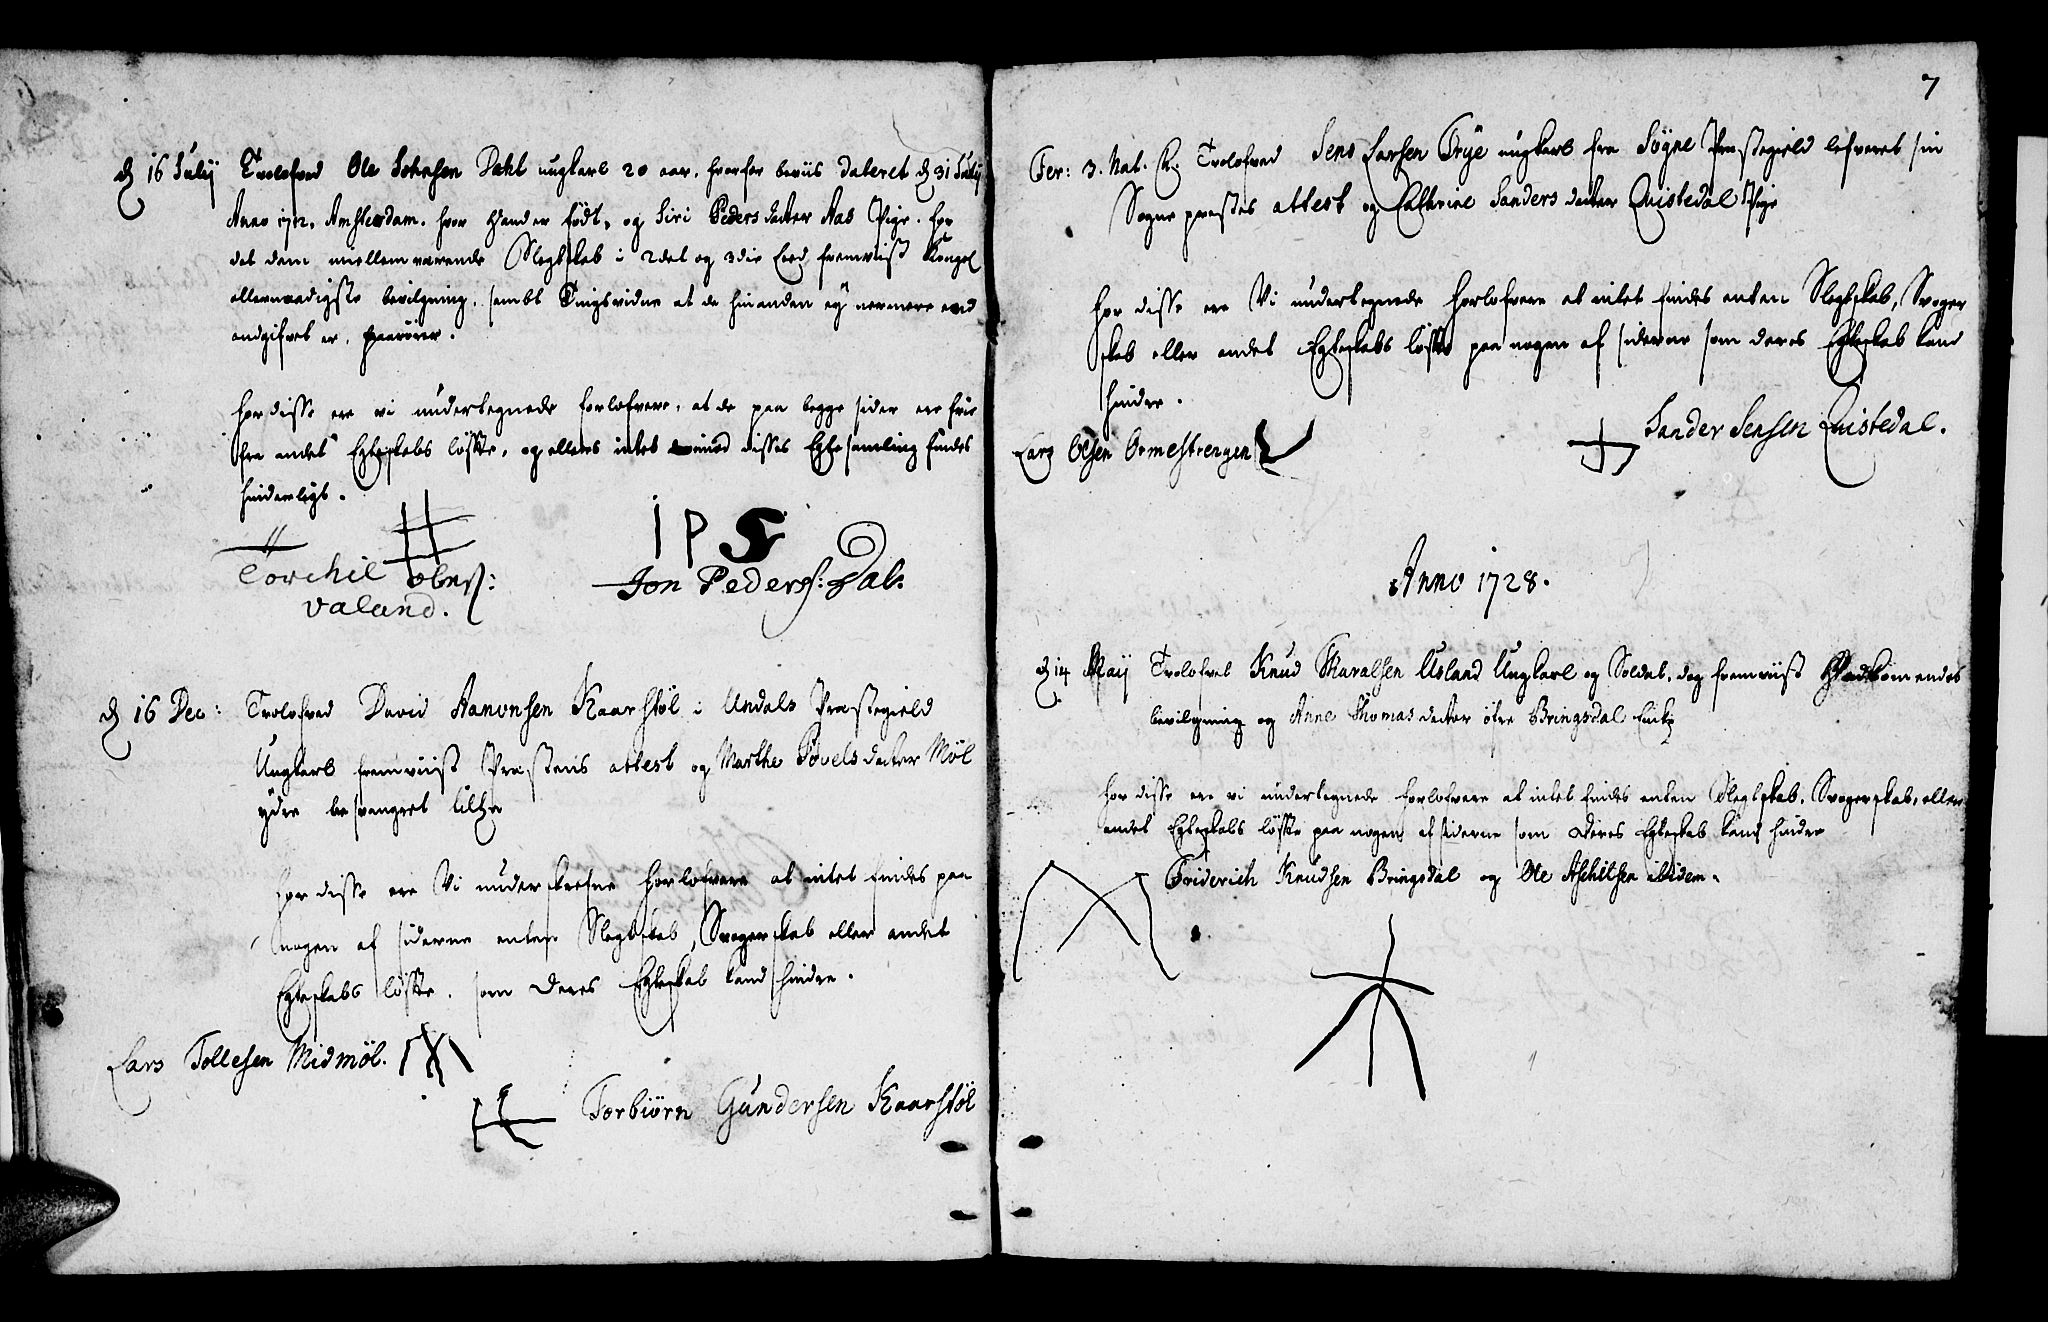 d 16 Julij Trolofved Ole Johnsen Dahl ungkarl 20 aar, hvorfor beviis dateret d 31 Julij
Anno 1712. Amsterdam. hvor hand er födt, og Siri Peders datter Aas Pige. for
det dem imellem værende Slegtskab i 2det og 3die Leed fremviist Kongel
allernaadigste bevilgning, sambt Tingsvidne at de hinanden ey nermere end
angifvet er, paarörer.
for disse ere vi undertegnede forlofvere, at de paa begge sider ere frie
fra andet Egteskabs löffte, og ellers intet imod disses Egte samling findes
hinderligt.
I P S
Torchil Olers:
Valand.
Jon Peders: Dal.
d 16 Dec: Trolofved David Aanonsen Kaarstöl i Undals Præstegield
Ungkarl fremviist Præstens attest og Marthe Povels datter Möl
ydre besvangret
for disse ere Vi underskrefne forlofvere at intet findes paa
nogen af siderne enten Slegtskab, Svogerskab eller andet
Egteskabs löffte, som deres Egteskab kand hindre.
Lars Tollesen Midmöl.
Torbiörn Gundersen Kaarstöl
7
Fer: 3. Nat. C: Trolofved Jens Larsen Trye ungkarl fra Sögne Præstegield lefveret sin
Sogne præstes attest og Cathrine Sanders datter Qvistedal Pige
for disse ere Vi undertegnede forlofvere at intet findes enten Slegtskab, Svoger
skab eller andet Egteskabs löffte paa nogen af siderne som deres Egteskab kand
hindre.
Lars Olsen Ormestrengen
Sander Jensen Qvistedal.
Anno 1728.
d 14 Maij Trolofvet Knud Tharalsen Usland Ungkarl og Soldat, dog fremviist
bevilgning og Anne Thomas datter öfre Bringsdal Enke
for disse ere vi undertegnede forlofvere at intet findes enten Slegtskab, Svogerskab, eller
andet Egteskabs löffte paa nogen af siderne som deres Egteskab kand hindre
Friderich Knudsen Bringsdal og Ole Aschilsen ibidem.